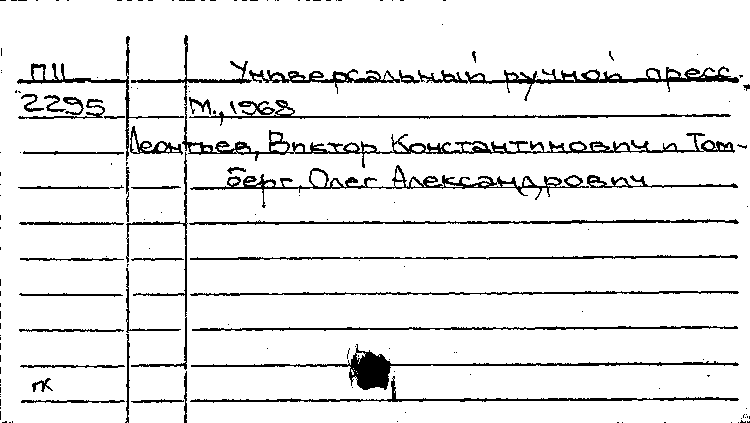 П11 Универсальный ручной пресс.
2295 М., 1968
Леонтьев, Виктор Константинович и Том-
берг, Олег Александрович
ПК